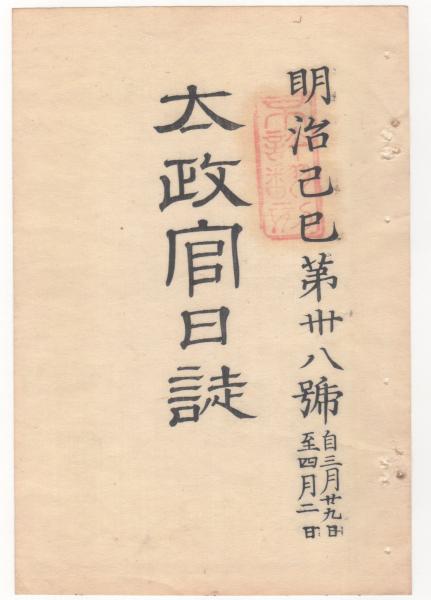 明治己巳第卅八號
自三月廿九日
至四月二日
太政官日誌